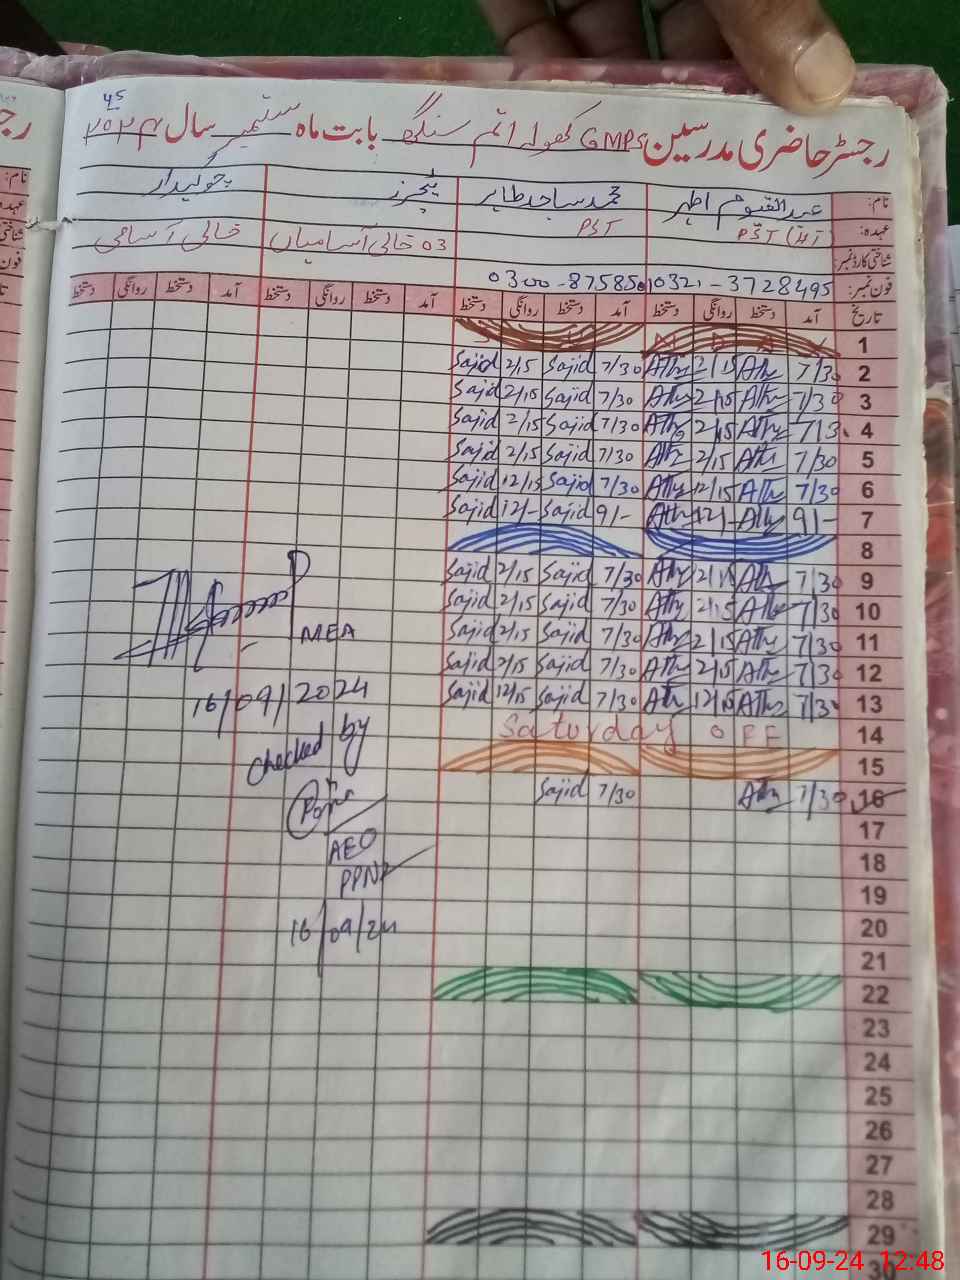 45
رجسٹر حاضری مدرسین GMPS کھولہ اتم سنگھ بابت ماہ ستمبر سال ۲۰۲۴
نام: عبدالقیوم اطہر محمد ساجد طاہر ٹیچرز چوکیدار
عہدہ: PST PST 03 خالی آسامیاں خالی آسامی
شناختی کارڈ نمبر:
فون نمبر: 0321-3728495 0300-87585
تاریخ آمد دستخط روانگی دستخط آمد دستخط روانگی دستخط آمد دستخط روانگی دستخط آمد دستخط روانگی دستخط
1
Sajid 2/15 Sajid 7/30 Athr 2/15 Athr 7/30 2
Sajid 2/15 Sajid 7/30 Athr 2/15 Athr 7/30 3
Sajid 2/15 Sajid 7/30 Athr 2/15 Athr 7/3 4
Sajid 2/15 Sajid 7/30 Athr 2/15 Athr 7/30 5
Sajid 12/15 Sajid 7/30 Athr 12/15 Athr 7/30 6
Sajid 12/- Sajid 9/- Athr 12/- Athr 9/- 7
8
Sajid 2/15 Sajid 7/30 Athr 2/15 Athr 7/30 9
Sajid 2/15 Sajid 7/30 Athr 2/15 Athr 7/30 10
Sajid 2/15 Sajid 7/30 Athr 2/15 Athr 7/30 11
Sajid 2/15 Sajid 7/30 Athr 2/15 Athr 7/30 12
Sajid 12/15 Sajid 7/30 Athr 12/15 Athr 7/30 13
Saturday OFF 14
15
Sajid 7/30 Athr 7/30 16
17
18
19
20
21
22
23
24
25
26
27
28
29
30
MEA
16/09/2024
checked by
AEO
16/09/24
16-09-24 12:48